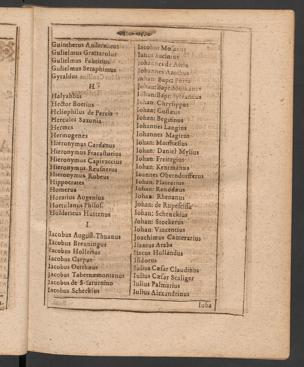 Guintherus Andernacus
Gulielmus Grattarolus
Gulielmus Fabritius
Gulielmus Scraphinus
Gyraldus
H.
Halyabbas
Hector Boetius
Heliophilus de Percis
Hercules Saxonia
Hermes
Hermogenes
Hieronymus Cardanus
Hieronymus Fracastorius
Hieronymus Capivaccius
Hieronymus Reusnerus
Hieronymus Rubeus
Hippocrates
Homerus
Horatius Augenius
Hortulanus Philos.
Huldericus Huttenus
I.
Iacobus August. Thuanus
Iacobus Breuningus
Iacobus Hollerius
Iacobus Carpus
Iacobus Oetthæus
Iacobus Tabernæmontanus
Iacobus de S.
Iacobus Scheckius
Iacobus
Ianus
Johannes de
Johannes
Iohan: Bapt: Porta
Iohan: Bapt: Montanus
Iohan: Bapt:
Iohan: Chrysippus
Iohan:
Iohan: Beguinus
Iohannes Langius
Iohannes Magirus
Iohan:
Iohan: Daniel Mylius
Iohan: Freitagius
Iohan: Kentmanus
Iohannes Oberndorfferus
Iohan: Platearius
Iohan: Renodæus
Iohan: Rhenanus
Iohan: de Rupescissa
Iohan: Schenckius
Iohan: Stockerus
Iohan: Vincentius
Joachimus Camerarius
Isaacus Araba
Isacus Hollandus
Isidorus
Iulius Cæsar Claudinus
Iulius Cæsar Scaliger
Iulius Palmarius
Iulius Alexandrinus
Iuba